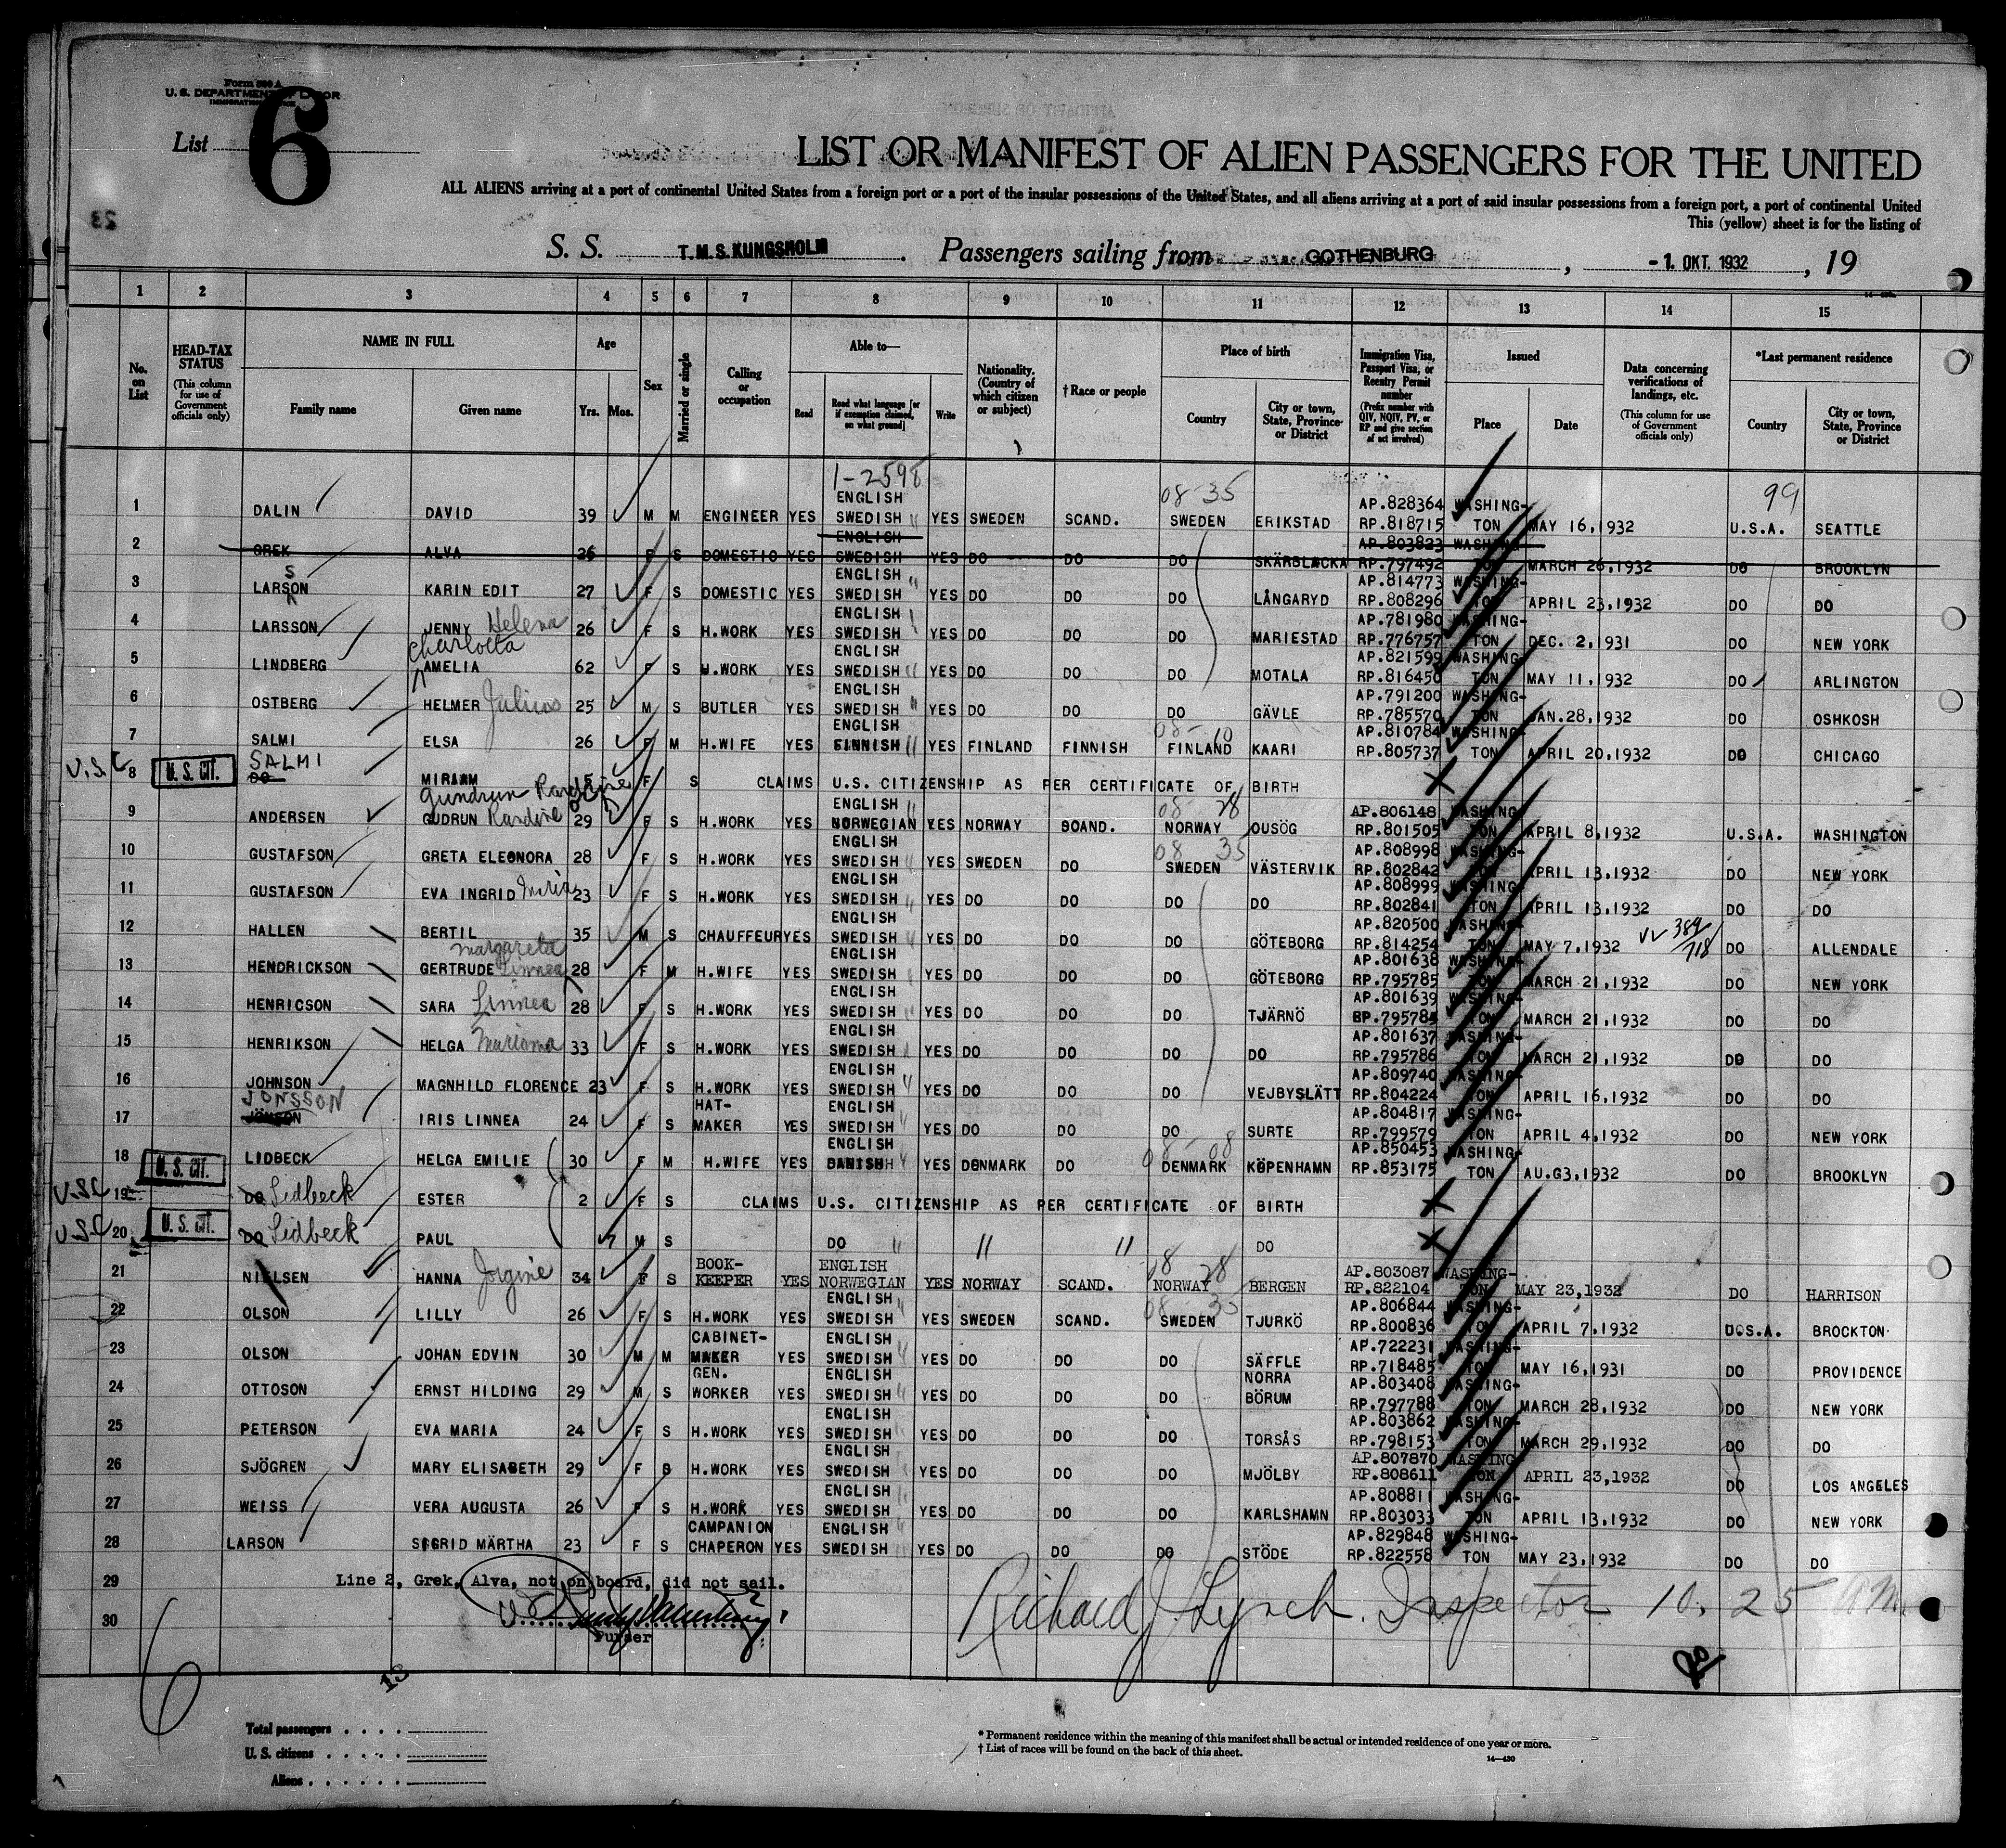 Form 500 A
U. S. DEPARTMENT OF LABOR
IMMIGRATION SERVICE
List 6
LIST OR MANIFEST OF ALIEN PASSENGERS FOR THE UNITED
ALL ALIENS arriving at a port of continental United States from a foreign port or a port of the insular possessions of the United States, and all aliens arriving at a port of said insular possessions from a foreign port, a port of continental United
This (yellow) sheet is for the listing of
S. S. T.M.S. KUNGSHOLM. Passengers sailing from GOTHENBURG, -1. OKT. 1932, 19
1 2 3 4 5 6 7 8 9 10 11 12 13 14 15
No. on List
HEAD-TAX STATUS (This column for use of Government officials only)
NAME IN FULL
Family name
Given name
Age
Yrs. Mos.
Sex
Married or single
Calling or occupation
Able to—
Read
Read what language [or if exemption claimed, on what ground]
Write
Nationality. (Country of which citizen or subject)
† Race or people
Place of birth
Country
City or town, State, Province or District
Immigration Visa, Passport Visa, or Reentry Permit number (Prefix number with QIV, NQIV, PV, or RP and give section of act involved)
Issued
Place
Date
Data concerning verifications of landings, etc. (This column for use of Government officials only)
*Last permanent residence
Country
City or town, State, Province or District
1-2598 08 35 99
1 DALIN DAVID 39 M M ENGINEER YES ENGLISH SWEDISH YES SWEDEN SCAND. SWEDEN ERIKSTAD AP.828364 RP.818715 WASHINGTON MAY 16,1932 U.S.A. SEATTLE
2 GREK ALVA 26 F S DOMESTIC YES ENGLISH SWEDISH YES DO DO DO SKÄRBLACKA AP.803823 RP.797492 WASHINGTON MARCH 26,1932 DO BROOKLYN
3 LARSSON KARIN EDIT 27 F S DOMESTIC YES ENGLISH SWEDISH YES DO DO DO LÅNGARYD AP.814773 RP.808296 WASHINGTON APRIL 23,1932 DO DO
4 LARSSON JENNY Helena 26 F S H.WORK YES ENGLISH SWEDISH YES DO DO DO MARIESTAD AP.781980 RP.776757 WASHINGTON DEC. 2,1931 DO NEW YORK
5 LINDBERG Charlotta AMELIA 62 F S H.WORK YES ENGLISH SWEDISH YES DO DO DO MOTALA AP.821599 RP.816450 WASHINGTON MAY 11,1932 DO ARLINGTON
6 OSTBERG HELMER Julius 25 M S BUTLER YES ENGLISH SWEDISH YES DO DO DO GÄVLE AP.791200 RP.785570 WASHINGTON JAN.28,1932 DO OSHKOSH
08 10
7 SALMI ELSA 26 F M H.WIFE YES ENGLISH FINNISH YES FINLAND FINNISH FINLAND KAARI AP.810784 RP.805737 WASHINGTON APRIL 20,1932 DO CHICAGO
U.S.C 8 U.S. CIT. DO SALMI MIRIAM F S CLAIMS U.S. CITIZENSHIP AS PER CERTIFICATE OF BIRTH
08 28
9 ANDERSEN GUDRUN Randine 29 F S H.WORK YES ENGLISH NORWEGIAN YES NORWAY SCAND. NORWAY OUSÖG AP.806148 RP.801505 WASHINGTON APRIL 8,1932 U.S.A. WASHINGTON
08 35
10 GUSTAFSON GRETA ELEONORA 28 F S H.WORK YES ENGLISH SWEDISH YES SWEDEN DO SWEDEN VÄSTERVIK AP.808998 RP.802842 WASHINGTON APRIL 13,1932 DO NEW YORK
11 GUSTAFSON EVA INGRID Maria 23 F S H.WORK YES ENGLISH SWEDISH YES DO DO DO DO AP.808999 RP.802841 WASHINGTON APRIL 13,1932 DO DO
12 HALLEN BERTIL 35 M S CHAUFFEUR YES ENGLISH SWEDISH YES DO DO DO GÖTEBORG AP.820500 RP.814254 WASHINGTON MAY 7,1932 384/718 DO ALLENDALE
13 HENDRICKSON GERTRUDE Margareta Linnea 28 F M H.WIFE YES ENGLISH SWEDISH YES DO DO DO GÖTEBORG AP.801638 RP.795785 WASHINGTON MARCH 21,1932 DO NEW YORK
14 HENRICSON SARA Linnea 28 F S H.WORK YES ENGLISH SWEDISH YES DO DO DO TJÄRNÖ AP.801639 RP.795784 WASHINGTON MARCH 21,1932 DO DO
15 HENRIKSON HELGA Mariana 33 F S H.WORK YES ENGLISH SWEDISH YES DO DO DO DO AP.801637 RP.795786 WASHINGTON MARCH 21,1932 DO DO
16 JOHNSON MAGNHILD FLORENCE 23 F S H.WORK YES ENGLISH SWEDISH YES DO DO DO VEJBYSLÄTT AP.809740 RP.804224 WASHINGTON APRIL 16,1932 DO DO
17 JONSSON IRIS LINNEA 24 F S HAT-MAKER YES ENGLISH SWEDISH YES DO DO DO SURTE AP.804817 RP.799579 WASHINGTON APRIL 4,1932 DO NEW YORK
08 08
18 LIDBECK HELGA EMILIE 30 F M H.WIFE YES ENGLISH DANISH YES DENMARK DO DENMARK KÖPENHAMN AP.850453 RP.853175 WASHINGTON AU.G3,1932 DO BROOKLYN
U.S.C 19 U.S. CIT. DO Lidbeck ESTER 2 F S CLAIMS U.S. CITIZENSHIP AS PER CERTIFICATE OF BIRTH
U.S.C 20 U.S. CIT. DO Lidbeck PAUL M S DO " " " DO
08 28
21 NIELSEN HANNA Jorgine 34 F S BOOK-KEEPER YES ENGLISH NORWEGIAN YES NORWAY SCAND. NORWAY BERGEN AP.803087 RP.822104 WASHINGTON MAY 23,1932 DO HARRISON
08 35
22 OLSON LILLY 26 F S H.WORK YES ENGLISH SWEDISH YES SWEDEN SCAND. SWEDEN TJURKÖ AP.806844 RP.800836 WASHINGTON APRIL 7,1932 U.S.A. BROCKTON
23 OLSON JOHAN EDVIN 30 M M CABINET-MAKER YES ENGLISH SWEDISH YES DO DO DO SÄFFLE AP.722231 RP.718485 WASHINGTON MAY 16,1931 DO PROVIDENCE
24 OTTOSON ERNST HILDING 29 M S GEN. WORKER YES ENGLISH SWEDISH YES DO DO DO NORRA BÖRUM AP.803408 RP.797788 WASHINGTON MARCH 28,1932 DO NEW YORK
25 PETERSON EVA MARIA 24 F S H.WORK YES ENGLISH SWEDISH YES DO DO DO TORSÅS AP.803862 RP.798153 WASHINGTON MARCH 29,1932 DO DO
26 SJÖGREN MARY ELISABETH 29 F S H.WORK YES ENGLISH SWEDISH YES DO DO DO MJÖLBY AP.807870 RP.808611 WASHINGTON APRIL 23,1932 DO LOS ANGELES
27 WEISS VERA AUGUSTA 26 F S H.WORK YES ENGLISH SWEDISH YES DO DO DO KARLSHAMN AP.808811 RP.803033 WASHINGTON APRIL 13,1932 DO NEW YORK
28 LARSON SIGRID MÄRTHA 23 F S CAMPANION CHAPERON YES ENGLISH SWEDISH YES DO DO DO STÖDE AP.829848 RP.822558 WASHINGTON MAY 23,1932 DO DO
29 Line 2, Grek, Alva, not on board, did not sail.
30 Purser
Richard J Lynch. Inspector 10.25 AM.
6
13
Total passengers
U. S. citizens
Aliens
* Permanent residence within the meaning of this manifest shall be actual or intended residence of one year or more.
† List of races will be found on the back of this sheet.
14—430